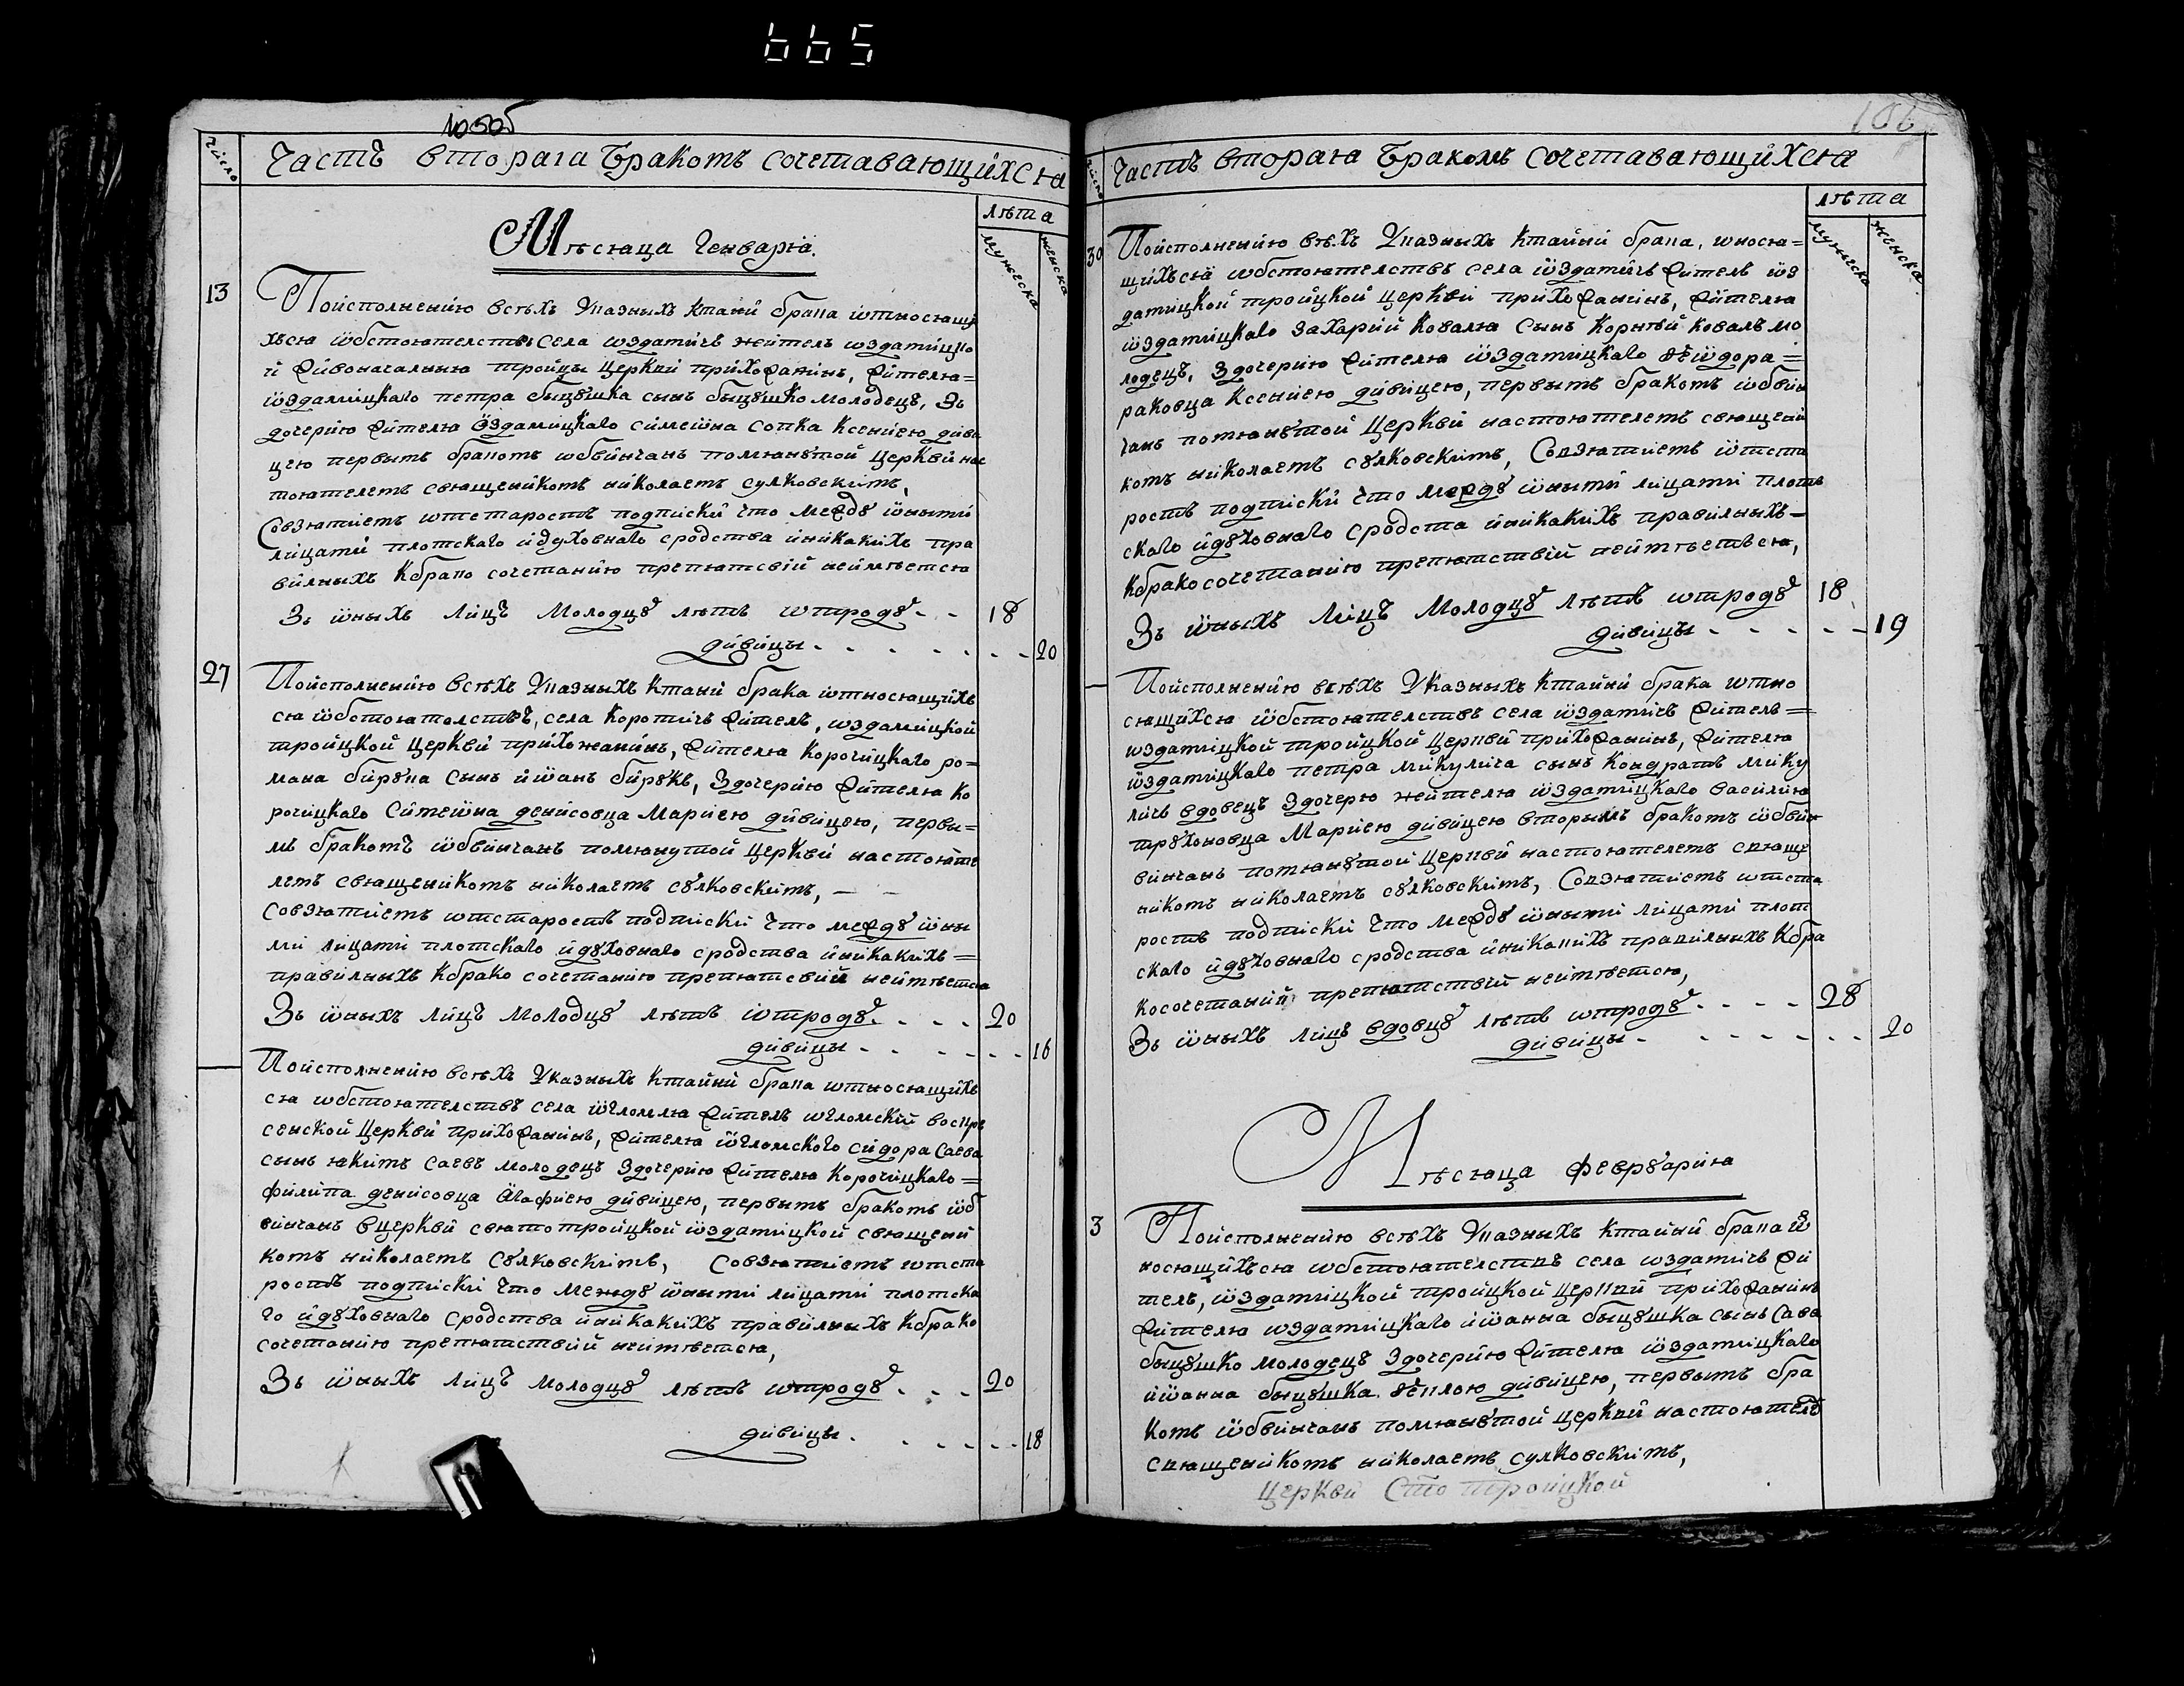 665
105об
Число
Часть втораѧ Бракомъ сочетавающихсѧ
лѣта
мужеска
женска
Мѣсѧца Генварѧ.
13
Поисполнению всѣхъ Указныхъ ктаинѣ брака ѿносѧщи
хъсѧ ѡбстоѧтелствъ села ѡздамичъ житель ѡздамицко
й Живоначалныѧ тройцы церкви прихожанинъ, жителѧ=
ѡздамицкаго петра быцꙋшка сынъ быцꙋшко молодецъ, зъ
дочерию жителѧ ѡздамицкаго симеѡна сопка Ксениею диви
цею первымъ бракомъ ѡбвинчанъ помѧнꙋтой церкви нас
тоѧтелемъ свѧщеникомъ николаемъ сулковскимъ,
Совзѧтиемъ ѿстаростъ подписки что междꙋ ѡными
лицами плотскаго идуховнаго сродства иникакихъ пра
вилныхъ кбрако сочетанию препѧтсвий неимѣетсѧ
Зъ ѡныхъ лицъ молодцꙋ лѣтъ ѿродꙋ - - 18
дивицы - - - - - - - - 20
27
Поисполнению всѣхъ Указныхъ ктаинѣ брака ѿносѧщихъ
сѧ ѡбстоѧтелствъ, села коротичъ житель, ѡздамицкой
тройцкой церкви прихожанинъ, жителѧ корочицкаго ро=
мана бирꙋка сынъ иѡанъ бирꙋкъ, здочерию жителѧ ко
рочицкаго симеѡна денисовца Мариею дивицею, первы=
мъ бракомъ ѡбвинчанъ помѧнутой церкви настоѧте
лемъ свѧщеникомъ николаемъ сꙋлковскимъ, — —
совзѧтиемъ ѿстаростъ подписки что междꙋ ѡны
ми лицами плотскаго идꙋховнаго сродства иникакихъ=
правилныхъ кбрако сочетанию препѧтсвий неимѣетсѧ
Зъ ѡныхъ лицъ молодцꙋ лѣтъ ѿродꙋ - - - - 20
дивицы - - - - - - - 16
—
Поисполнению всѣхъ Указныхъ ктаинѣ брака ѿносѧщихъ
сѧ ѡбстоѧтелствъ села ѡгломлѧ житель ѡгломский воскре
сенской церкви прихожанинъ, жителѧ ѡгломского сидора Саева
сынъ ѧкимъ саевъ молодецъ здочерию жителѧ корочицкаго=
филипа денисовца Агафиею дивицею, первымъ бракомъ ѡб
винчанъ вцеркви свѧтотройцкой ѡздамицкой свѧщени
комъ николаемъ Сꙋлковскимъ, Совзѧтиемъ ѿста
ростъ подписки что междꙋ ѡными лицами плотска
го идꙋховнаго сродства иникакихъ правилныхъ кбрако
сочетанию препѧтствий неимѣетсѧ,
Зъ ѡныхъ лицъ молодцꙋ лѣтъ ѿродꙋ - - - 20
дивицы - - - - - - 18
106
Число
Часть втораѧ Бракомъ сочетавающихсѧ
лѣта
мужеска
женска
30
Поисполнению всѣхъ Указныхъ ктайни брака, ѡносѧ=
щихъсѧ ѡбстоѧтелствъ села ѡздамичъ житель ѡз
дамицкой тройцкой церкви прихожанинъ, жителѧ
ѡздамицкаго захарии ковалѧ сынъ корнѣй коваль мо
лодецъ, здочерию жителѧ ѡздамицкаго ѳеѡдора=
раковца Ксениею дивицею, первымъ бракомъ ѡбвин
чанъ помѧнꙋтой церкви настоѧтелемъ свѧщени
комъ николаемъ сꙋлковскимъ, Совзѧтиемъ ѿста
ростъ подписки что междꙋ ѡными лицами плот
скаго идꙋховнаго сродста иникакихъ правилныхъ—
кбракосочетанию препѧтствий неимѣетьсѧ,
Зъ ѡныхъ лицъ молодцꙋ лѣтъ ѿродꙋ 18
дивицы - - - - - 19
—
Поисполнению всѣхъ Указныхъ ктайни брака ѿно
сѧщихсѧ ѡбстоѧтелствъ села ѡздамичъ житель=
ѡздамицкой тройцкой церкви прихожанинъ, жителѧ
ѡздамицкаго петра микулича сынъ кондратъ мику
личъ вдовецъ здочерю жителѧ ѡздамицкаго василиѧ
трꙋхоновца Мариею дивицею вторымъ бракомъ ѡбвин
винчанъ помѧнꙋтой церкви настоѧтелемъ свѧще
никомъ николаемъ сꙋлковскимъ, Совзѧтиемъ ѿста
ростъ подписки что междꙋ ѡными лицами плот
скаго идꙋховнаго сродства иникакихъ правилныхъ кбра
косочетаний препѧтствий неимѣетсѧ,
Зъ ѡныхъ лицъ вдовцꙋ лѣтъ ѿродꙋ - - - - 28
дивицы - - - - - - - 20
Мѣсѧца феврꙋариѧ
3
Поисполнению всѣхъ Указныхъ ктайни брака ѿ
носѧщихъсѧ ѡбстоѧтелствъ села ѡздамичъ жи
тель, ѡздамицкой тройцкой церкви прихожанинъ
жителѧ ѡздамицкаго иѡанна быцꙋшка сынъ Сава
быцꙋшко молодецъ здочерию жителѧ ѡздамицкаго
иѡанна быцꙋшка ѳеклою дивицею, первымъ бра
комъ ѡбвинчанъ помѧнꙋтой церкви настоѧтелемъ
свѧщеникомъ николаемъ сулковскимъ,
Церкви Сто тройцкой